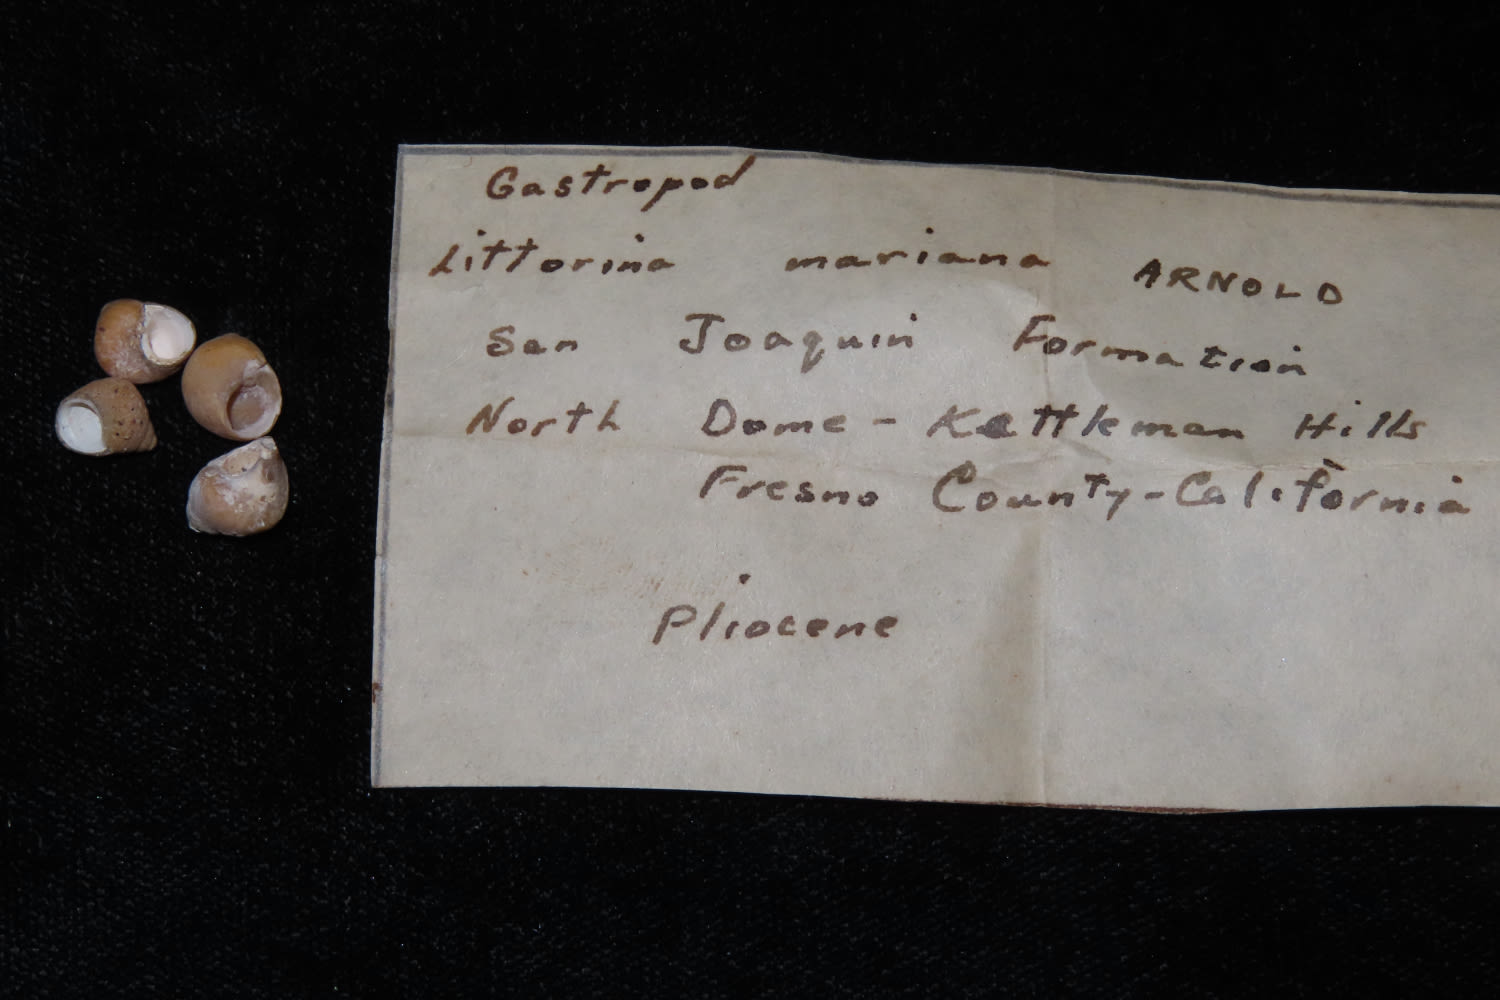 Gastropod
Littorina mariana ARNOLD
San Joaquin Formation
North Dome - Kettleman Hills
Fresno County - California
Pliocene